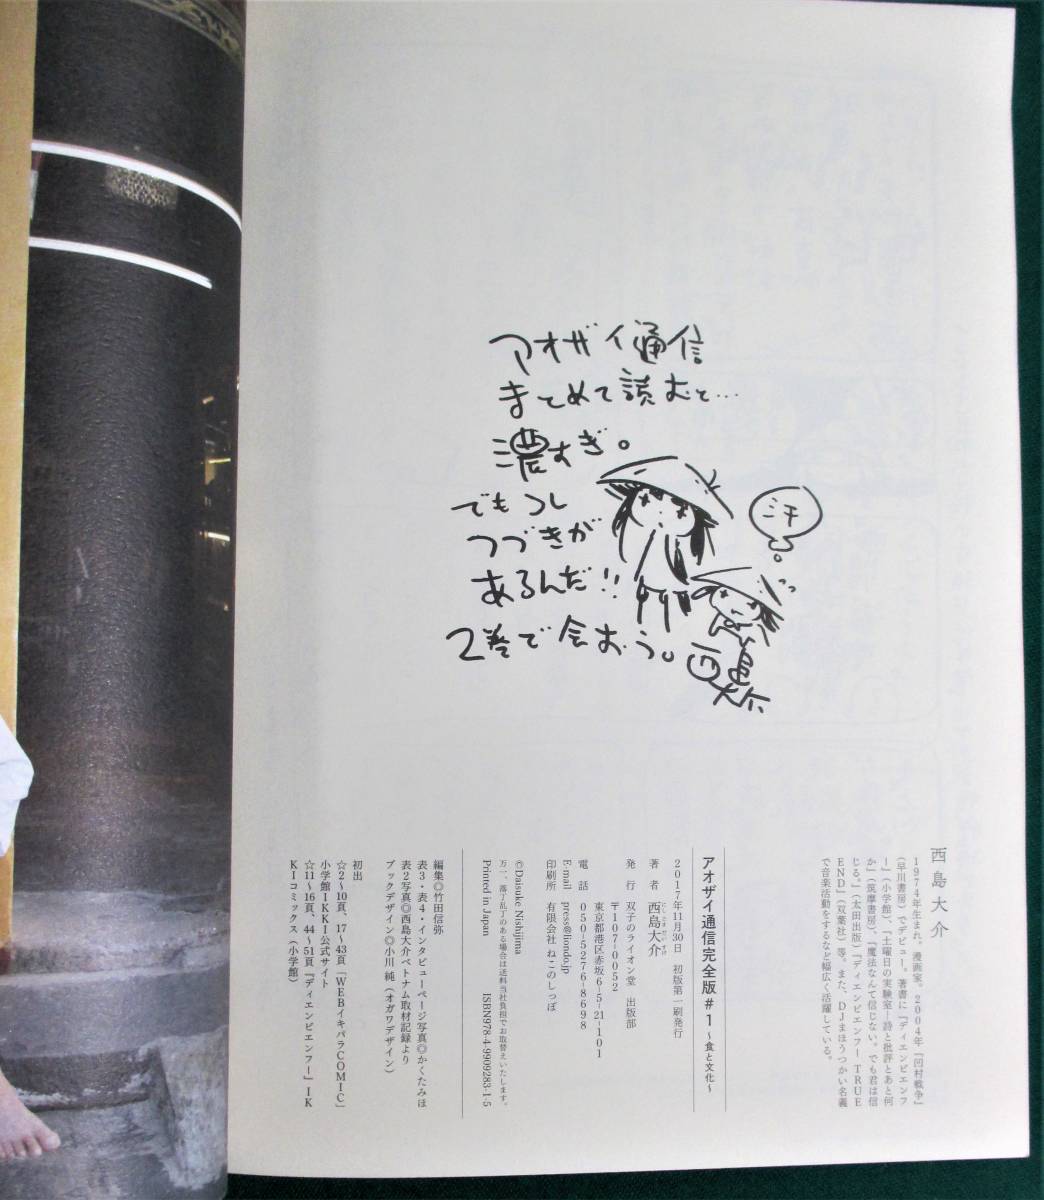 アオザイ通信
まとめて読むと…
濃すぎ。
でもつし
つづきが
あるんだ!!
2巻で会おう。
汗
西島大介
西島大介
1974年生まれ。漫画家。2004年『凹村戦争』
(早川書房)でデビュー。著書に『ディエンビエンフ
ー』(小学館)、『土曜日の実験室―詩と批評とあと何
か』(筑摩書房)、『魔法なんて信じない。でも君は信
じる。』(太田出版)『ディエンビエンフー TRUE
END』(双葉社)等。また、DJまほうつかい名義
で音楽活動をするなど幅広く活躍している。
アオザイ通信完全版#1 ～食と文化～
2017年11月30日 初版第一刷発行
著 者 西島大介
にしじまだいすけ
発 行 双子のライオン堂 出版部
〒107-0052
東京都港区赤坂6-5-21-101
電 話 050-5276-8698
E-mail press@liondo.jp
印刷所 有限会社 ねこのしっぽ
©Daisuke Nishijima
万一、落丁乱丁のある場合は送料当社負担でお取替えいたします。
Printed in Japan ISBN978-4-9909283-1-5
編集◎竹田信弥
表3・表4・インタビューページ写真◎かくたみほ
表2写真◎西島大介ベトナム取材記録より
ブックデザイン◎小川 純(オガワデザイン)
初出
☆2～10頁、17～43頁「WEBイキパラCOMIC」
小学館IKKI公式サイト
☆11～16頁、44～51頁『ディエンビエンフー』IK
KIコミックス(小学館)